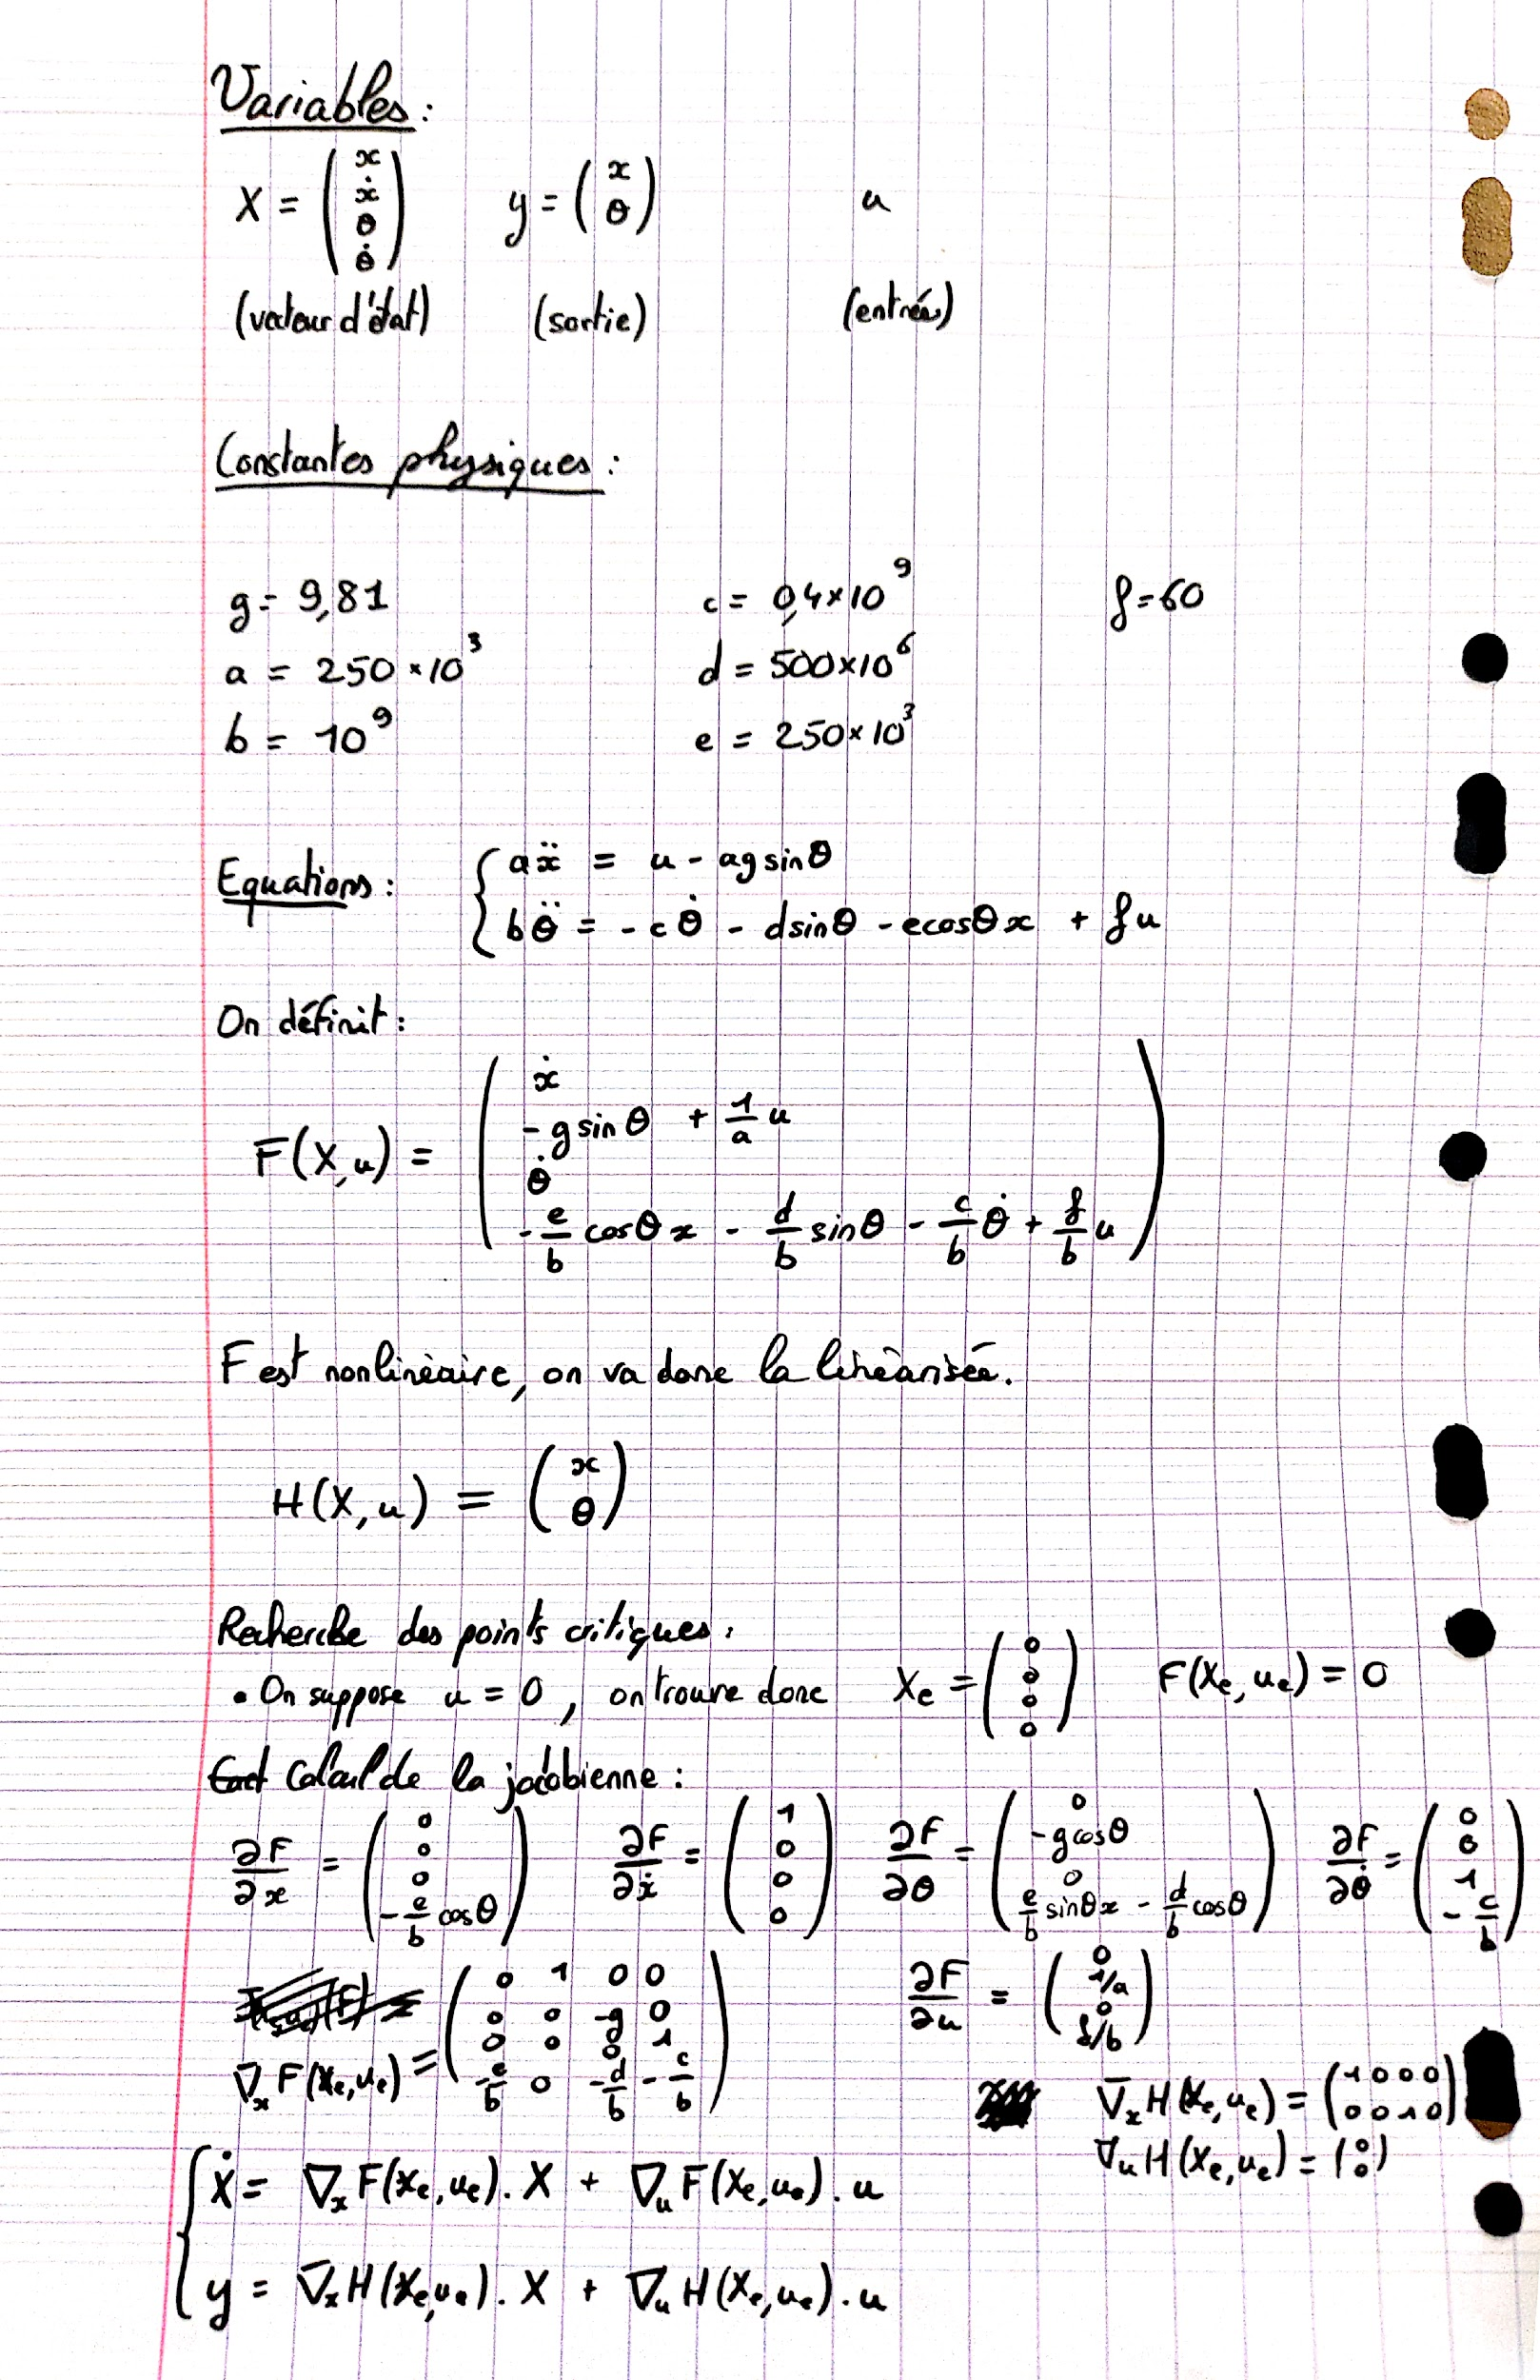 Variables :
X = ( x ẋ θ θ̇ ) y = ( x θ ) u
(vecteur d'état) (sortie) (entrée)
Constantes physiques :
g = 9,81 c = 0,4×10⁹ f = 60
a = 250×10³ d = 500×10⁶
b = 10⁹ e = 250×10³
Equations : { aẍ = u - ag sinθ
bθ̈ = - cθ̇ - d sinθ - e cosθ x + f u
On définit :
F(X,u) = ( ẋ
- g sinθ + 1/a u
θ̇
- e/b cosθ x - d/b sinθ - c/b θ̇ + f/b u )
F est nonlinéaire, on va donc la linéarisée.
H(X,u) = ( x θ )
Recherche des points critiques :
• On suppose u = 0, on trouve donc Xe = ( 0 0 0 0 ) F(Xe,ue) = 0
Calcul de la jacobienne :
∂F/∂x = ( 0 0 0 -e/b cosθ ) ∂F/∂ẋ = ( 1 0 0 0 ) ∂F/∂θ = ( 0 -g cosθ 0 e/b sinθ x - d/b cosθ ) ∂F/∂θ̇ = ( 0 0 1 -c/b )
∇x F(Xe,ue) = ( 0 1 0 0
0 0 -g 0
0 0 0 1
-e/b 0 -d/b -c/b )
∂F/∂u = ( 0 1/a 0 f/b )
∇x H(Xe,ue) = ( 1 0 0 0
0 0 1 0 )
∇u H(Xe,ue) = ( 0 0 )
{ Ẋ = ∇x F(Xe,ue). X + ∇u F(Xe,ue). u
y = ∇x H(Xe,ue). X + ∇u H(Xe,ue). u